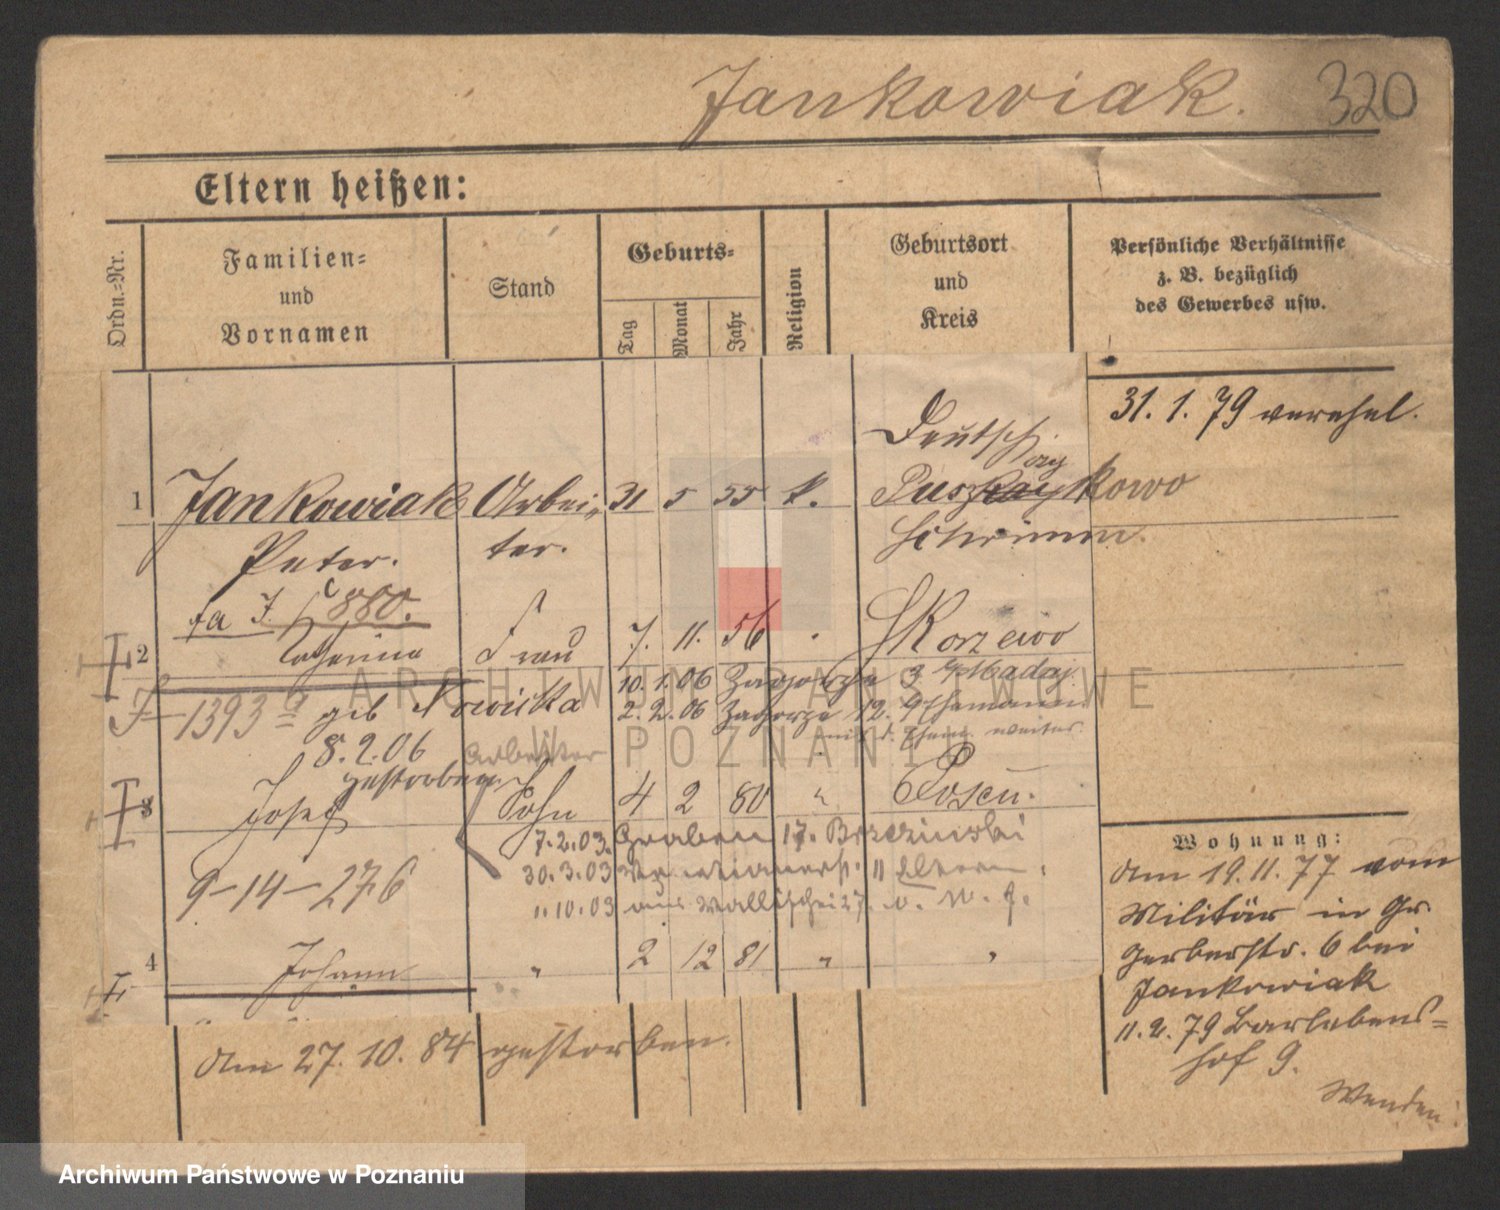 Jankowiak. 320
Eltern heißen:
Ordn.-Nr.
Familien-
und
Vornamen
Stand
Geburts-
Tag
Monat
Jahr
Religion
Geburtsort
und
Kreis
Persönliche Verhältnisse
z. B. bezüglich
des Gewerbes usw.
31. 1. 79 verehel.
Deutsch
1 Jankowiak Arbei- 31 5 55 k. Puszczykowo
Peter. ter. Schrimm.
fa J. 880.
2 Catharina Frau 7. 11. 56 " Skorzewo
10. 1. 06 Zagorze 3
F-1393 geb Nowicka 2. 2. 06 Zagorze 12. Ehemann
8. 2. 06 Arbeiter weiter
gestorben
3 Josef Sohn 4 2 80 " Posen.
7. 2. 03. Graben 17. Brzezinski
30. 3. 03 11 Eltern
9-14-276
1. 10. 03 aus Wallischei 27. v. W. g.
4 Johann " 2 12 81 " "
am 27. 10. 84 gestorben.
Wohnung:
Am 19. 11. 77 vom
Militär in Gr.
Gerberstr. 6 bei
Jankowiak
11. 2. 79 Bartebens-
hof 9.
Wenden!
ARCHIWUM PAŃSTWOWE
W POZNANIU
Archiwum Państwowe w Poznaniu